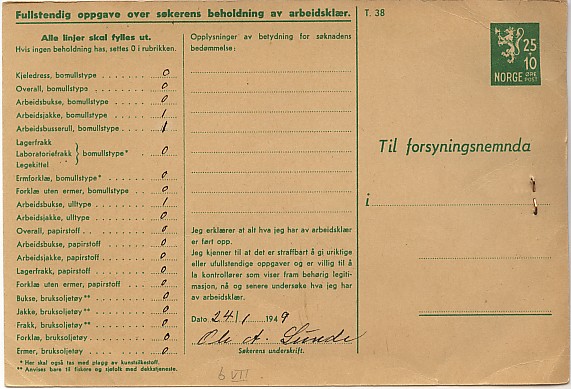 Fullstendig oppgave over søkerens beholdning av arbeidsklær.
Alle linjer skal fylles ut.
Hvis ingen beholdning has, settes 0 i rubrikken.
Kjeledress, bomullstype 0
Overall, bomullstype 0
Arbeidsbukse, bomullstype 0
Arbeidsjakke, bomullstype 1
Arbeidsbusserull, bomullstype 1
Lagerfrakk
Laboratoriefrakk } bomullstype* 0
Legekittel
Ermforklæ, bomullstype* 0
Forklæ uten ermer, bomullstype 0
Arbeidsbukse, ulltype 1
Arbeidsjakke, ulltype 0
Overall, papirstoff 0
Arbeidsbukse, papirstoff 0
Arbeidsjakke, papirstoff 0
Lagerfrakk, papirstoff 0
Forklæ uten ermer, papirstoff 0
Bukse, bruksoljetøy** 0
Jakke, bruksoljetøy** 0
Frakk, bruksoljetøy** 0
Forklæ, bruksoljetøy 0
Ermer, bruksoljetøy 0
* Her skal også tas med plagg av kunstsilkestoff.
** Anvises bare til fiskere og sjøfolk med dekkstjeneste.
Opplysninger av betydning for søknadens
bedømmelse:
Jeg erklærer at alt hva jeg har av arbeidsklær
er ført opp.
Jeg kjenner til at det er straffbart å gi uriktige
eller ufullstendige oppgaver og er villig til å
la kontrollører som viser fram behørig legiti-
masjon, nå og senere undersøke hva jeg har
av arbeidsklær.
Dato 24/1 1949
Ole A. Sunde
Søkerens underskrift.
6 VII
T. 38
25
+10
NORGE ØRE
POST
Til forsyningsnemnda
i